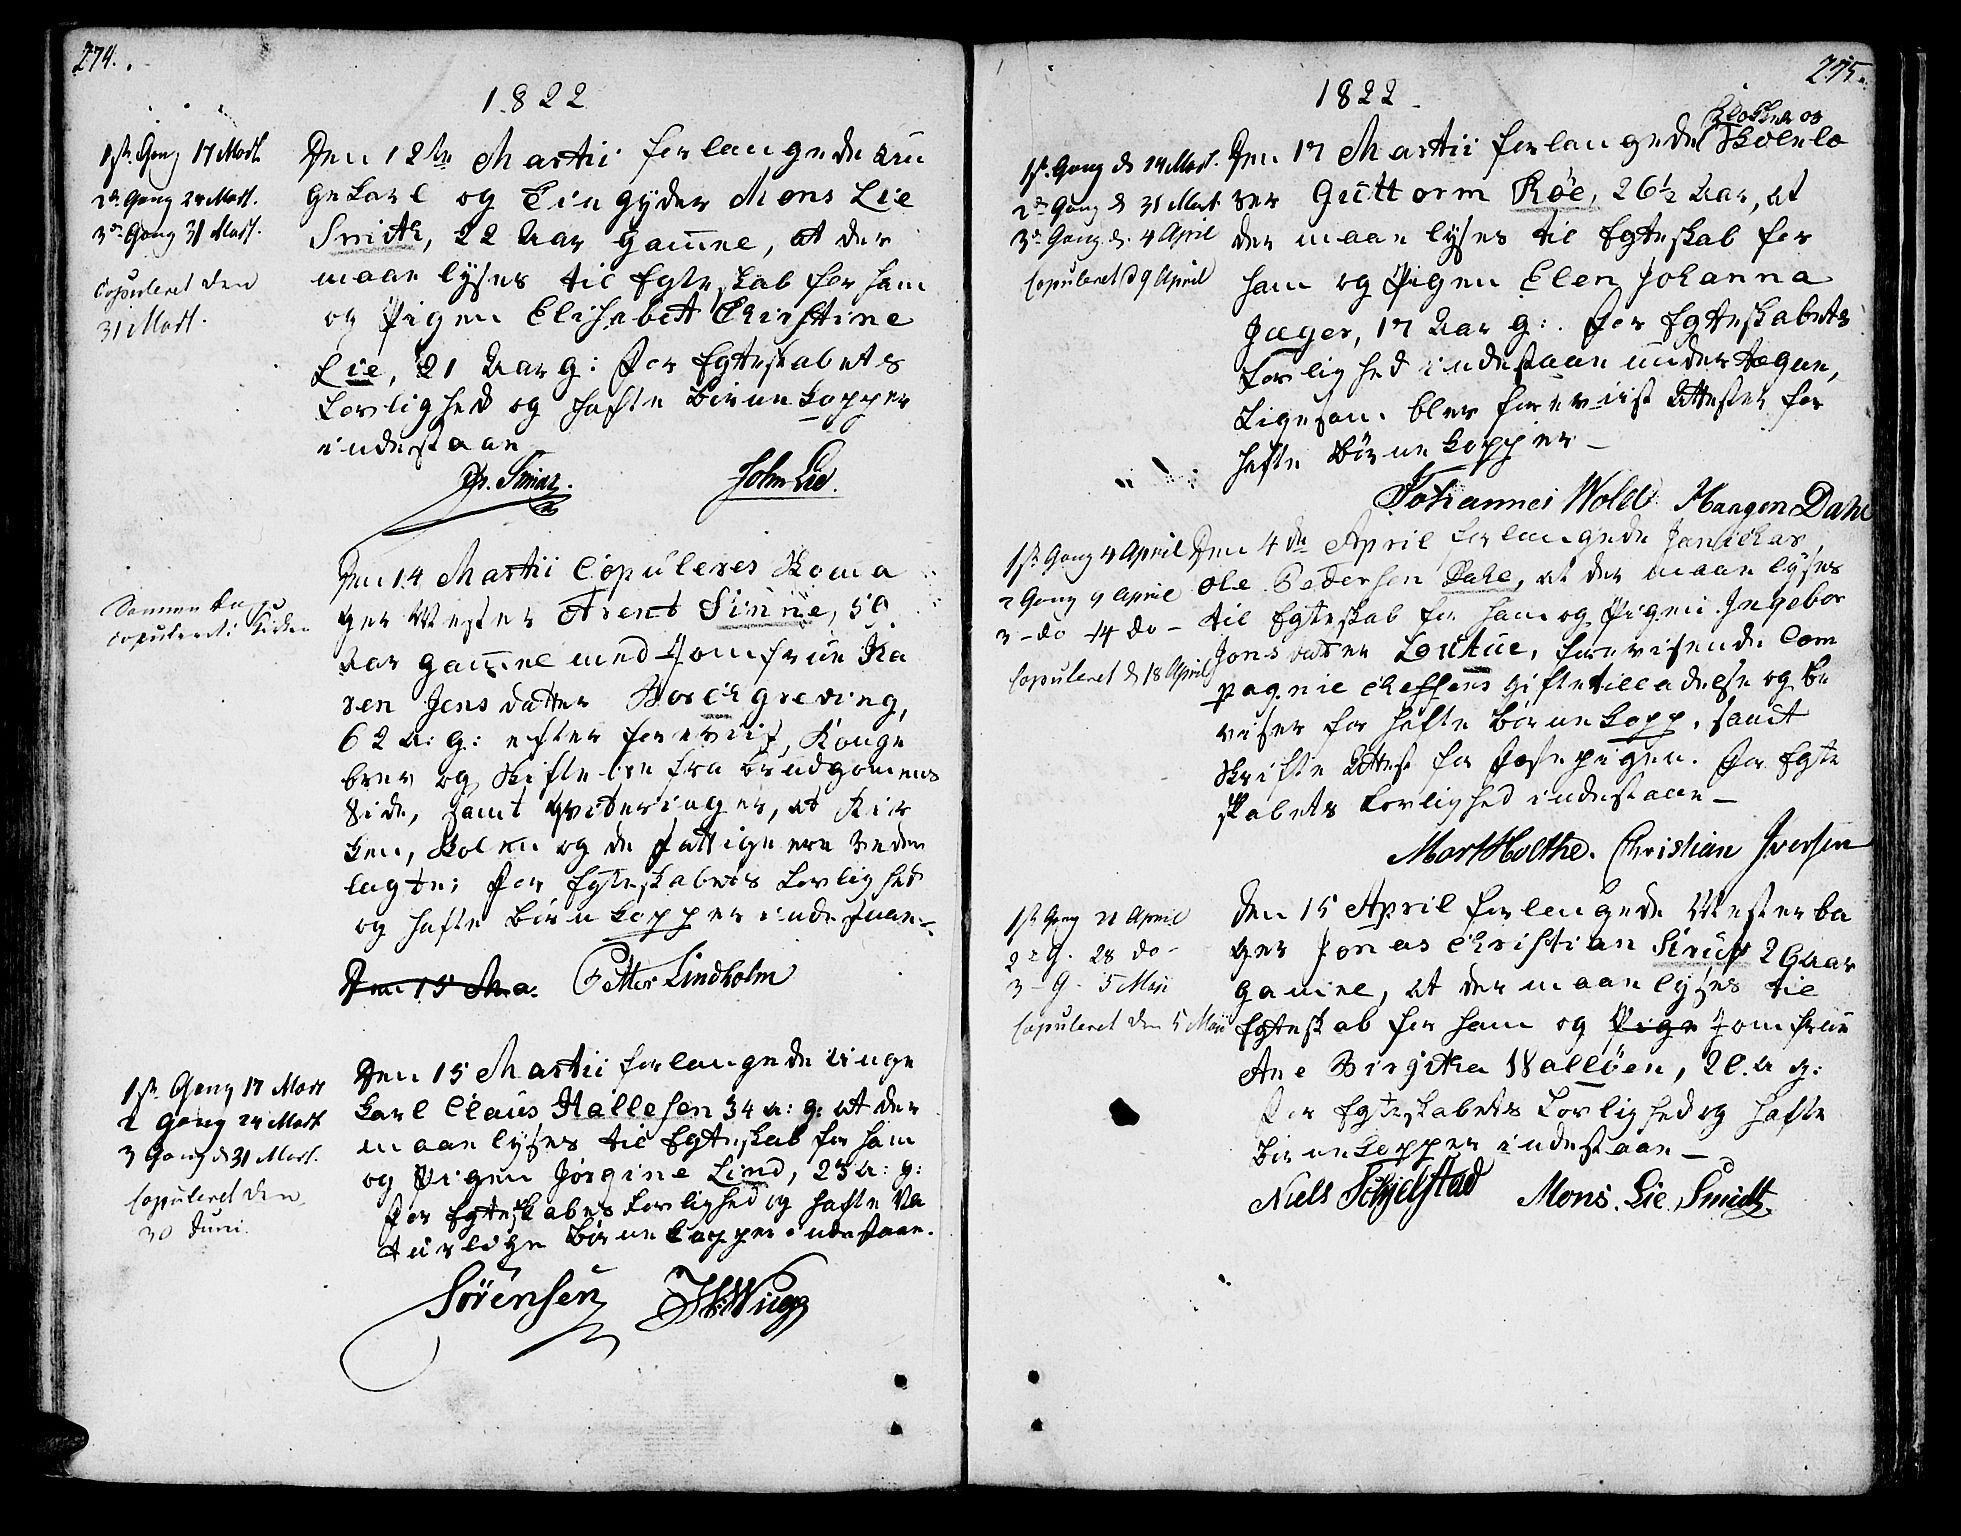 274.
1822
1ste Gang 17 Mart.
2den Gang 24 Mart.
3die Gang 31 Mart.
copuleret den
31 Mart.
Den 12te Martii forlangede un
gekarl og Tingyder Mons Lie
Smith, 22 Aar gamel, at der
maae lyses til Egteskab for ham
og Pigen Elisabet Christine
Lie, 21 Aar g: For Egteskabets
Lovlighed og hafte Börnekopper
indestaae
John Lie.
Sammen Dag
copuleret i Kirken
Den 14 Martii Copuleres Skoma
ger Mester Arent Sinne, 59
Aar gamel med Jomfrue Ka
ren Jensdatter Borchgreving,
62 a: g: efter foreviist Konge
brev og Skiftebre fra Brudgomens
Side, samt qviteringer, at Kir
ken, Skolen og de Fattige ere veder
lagte; For Egteskabets Lovlighed
og hafte Börnekopper indestaae.
Den 15 Ma. Petter Lindholm
1ste Gang 17 Mart
2 Gang 24 Mart
3 Gang d 31 Mart.
Copuleret den
30 Juni.
Den 15 Martii forlangede unge
karl Claus Hallesen 34 a: g: at der
maae lyses til Egteskab for ham
og Pigen Jörgine Lind, 23 a: g:
For Egteskabes Lovlighed og hafte Na
turlige Börnekopper indestaae.
Sörensen
275.
1822
1ste Gang d 14 Mart.
2den Gang d 31 Mart
3die Gang d. 4 April
Copuleret d 9 April
Klokker og
Den 17 Martii forlangede Skolelæ
rer Guttorm Röe, 26½ Aar, at
der maae lyses til Egteskab for
ham og Pigen Elen Johanna
Jæger, 17 Aar g:. For Egteskabets
Lovlighed indestaae undertegne,
Ligesom blev foreviist Attester for
hafte Börnekopper
Johannes Wold. Haagen Dahl
1ste Gang 4 April
2 Gang 9 April
3 – do 14 do –
Copuleret d 18 April
Den 4de April forlangede Janichar
Ole Pedersen Dahl, at der maae lyses
til Egteskab for ham og Pigen Ingebor
Jonsdatter, forevisende Com
pagnie cheffens Giftetilladelse og be
viser for hafte Börnekopp. samt
Skrifte Attest for Fæstepigen. For Egte
skabets Lovlighed indestaae –
Mort Holthe. Christian Iversen
1ste Gang 21 April
2den G. 28 do –
3 – G – 5 Mai
Copuleret den 5 Mai
Den 15 April forlangede Mesterba
ger Jonas Christian 26 aar
gamel, at der maae lyses til
Egteskab for ham og Pige Jomfrue
Ane Birgitha Wallöen, 20. a g:
For Egteskabets Lovlighed og hafte
Börnekopper indestaae –
Niels Schjelstad Mons. Lie. Smidt.